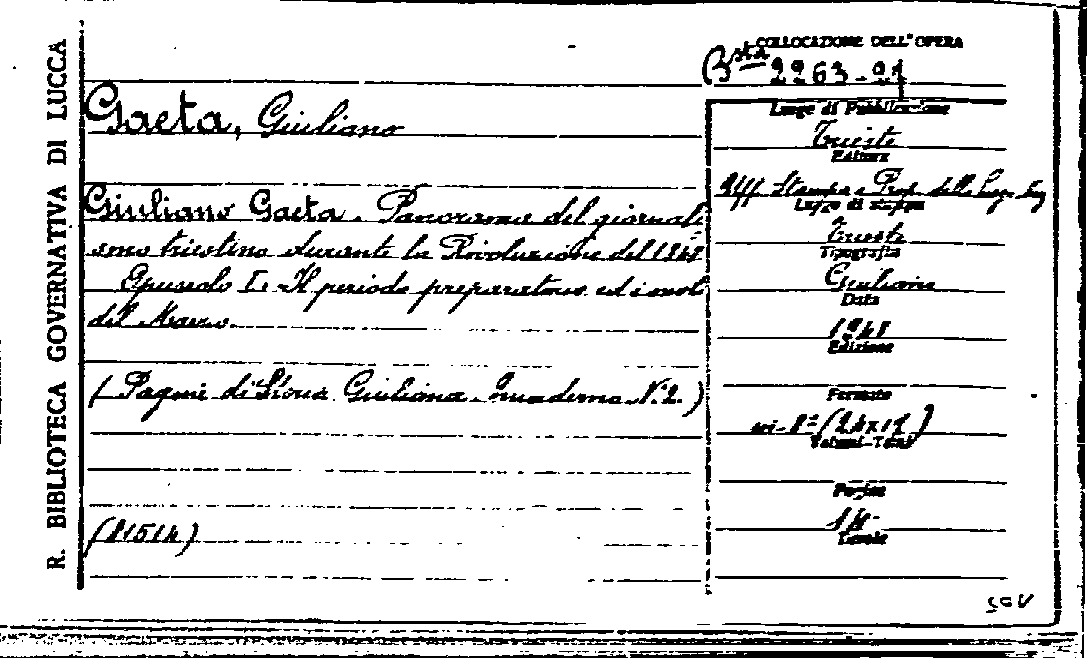 R. BIBLIOTECA GOVERNATIVA DI LUCCA
COLLOCAZIONE DELL'OPERA
Bsta 2263-21
Gaeta, Giuliano
Giuliano Gaeta. Panorama del giornali
smo triestino durante la Rivoluzione del 1848
Opuscolo I. Il periodo preparatorio ed i moti
del Marzo
(Pagine di Storia Giuliana. Quaderno N. 2.)
(81514)
Luogo di Pubblicazione
Trieste
Editore
Uff. Stampa e Prop. della
Luogo di stampa
Trieste
Tipografia
Giuliana
Data
1948
Edizione
Formato
in-8° (24x17)
Volumi-Tomi
Pagine
Tavole